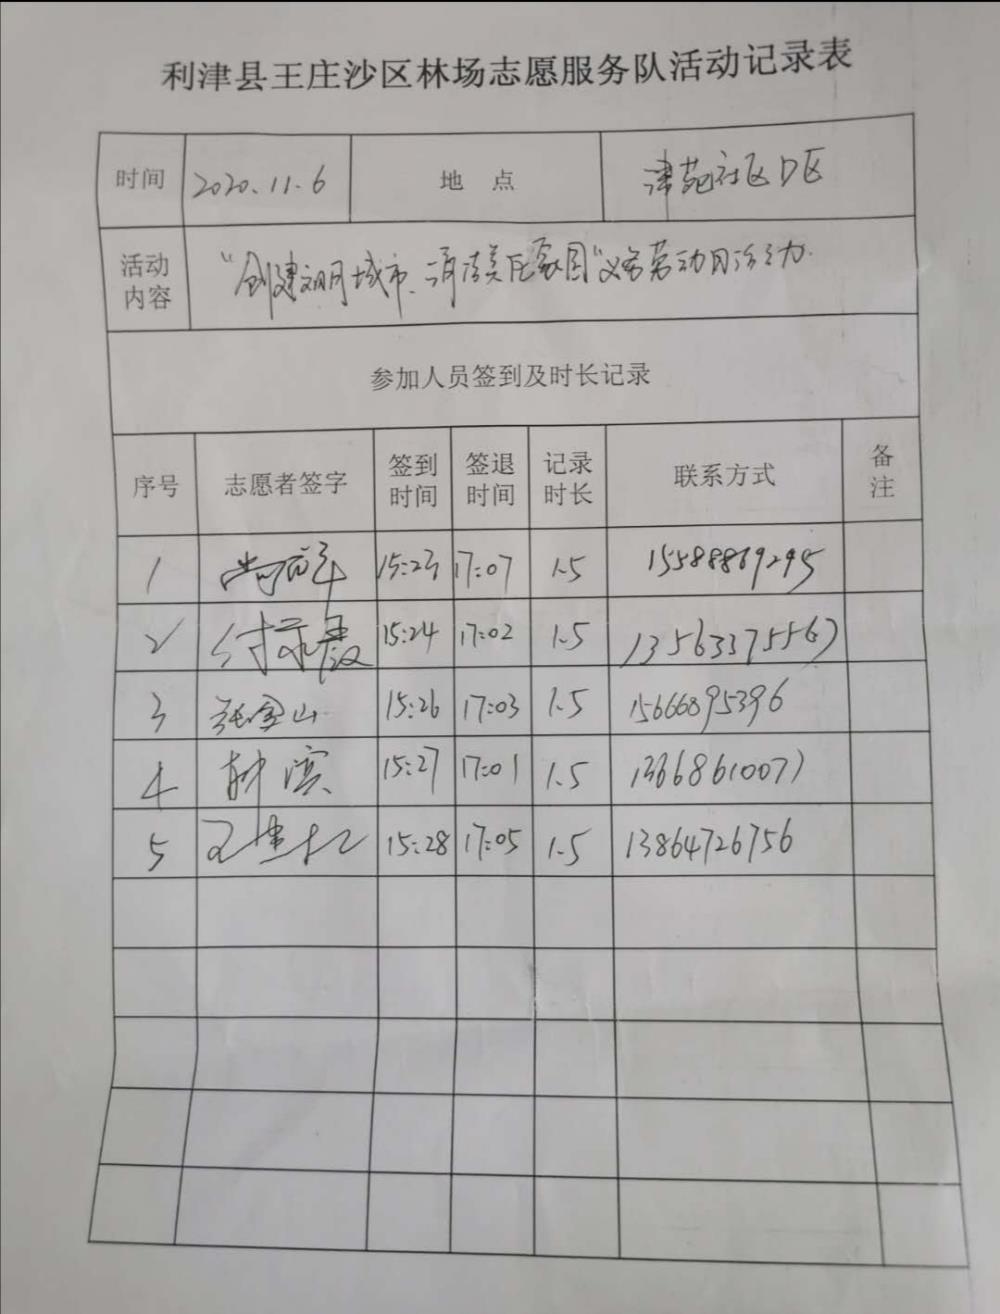 利津县王庄沙区林场志愿服务队活动记录表
时间 2020.11.6 地 点 津苑社区D区
活动内容 "创建文明城市、清洁美化家园"义务劳动日活动.
参加人员签到及时长记录
序号 志愿者签字 签到时间 签退时间 记录时长 联系方式 备注
1 15:23 17:07 1.5 15588869295
2 15:24 17:02 1.5 13563375567
3 张金山 15:26 17:03 1.5 15666895396
4 15:27 17:01 1.5 13668610071
5 15:28 17:05 1.5 13864726756